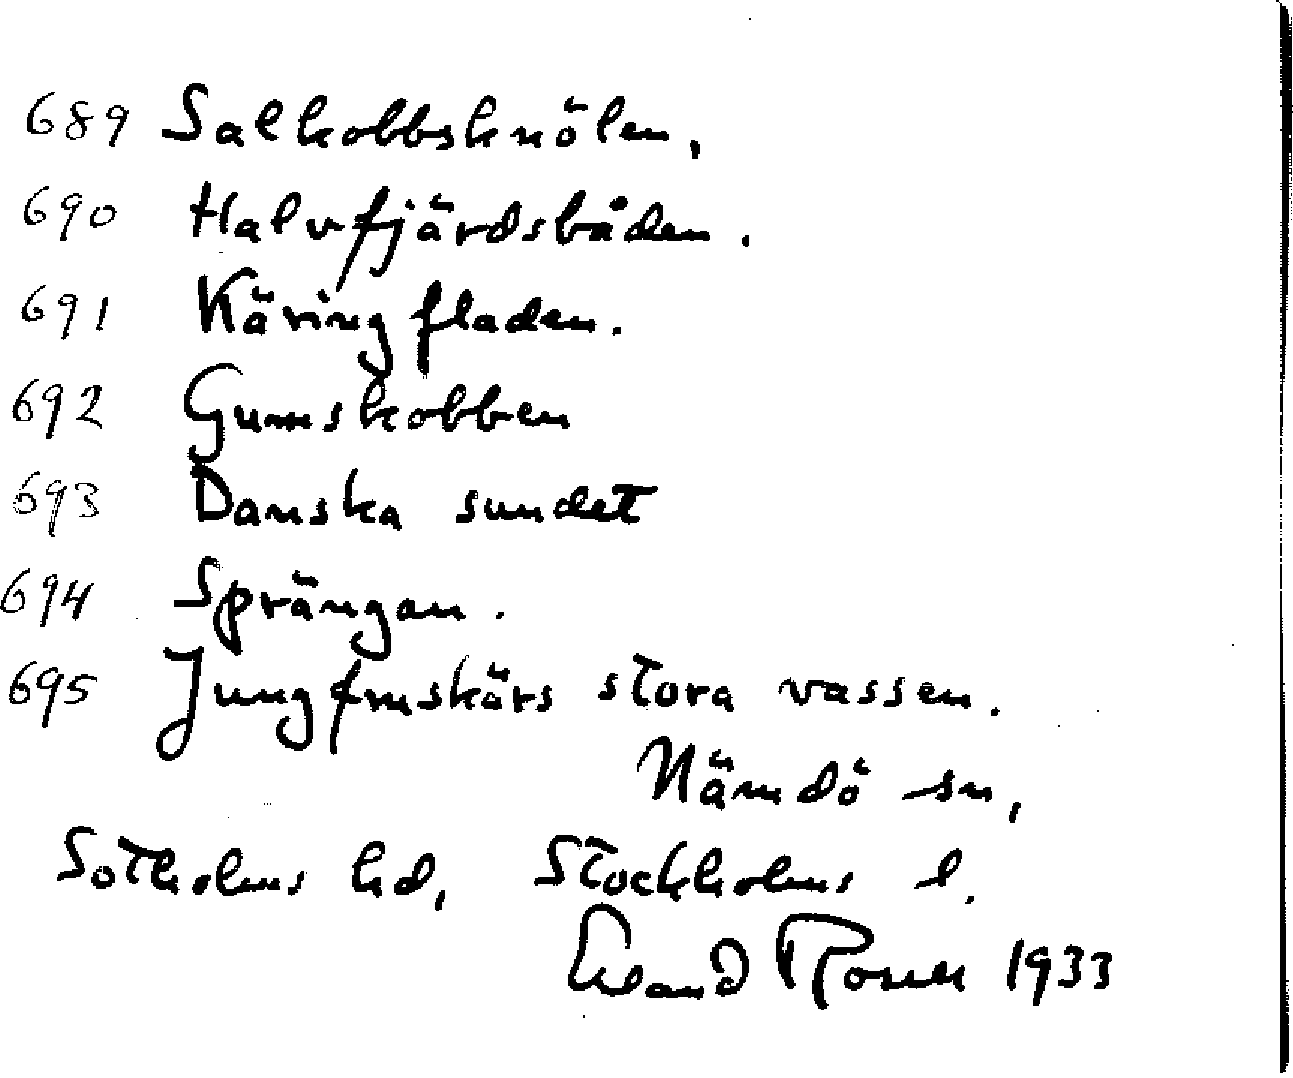 689 Salkobbsknölen,
690 Halvfjärdsbåden.
691 Käringfladen.
692 Gumskobben
693 Danska sundet
694 Sprängan.
695 Jungfruskärs stora vassen.
Nämdö sn,
Sotholms hd, Stockholms l.
1933